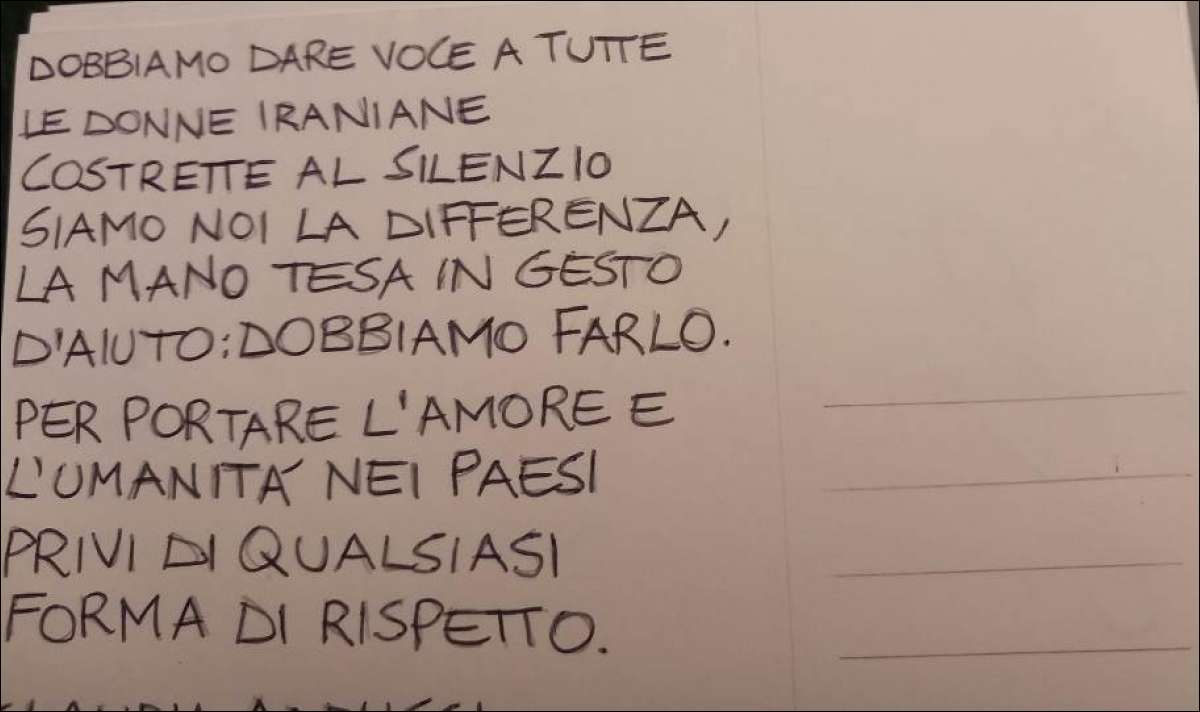 DOBBIAMO DARE VOCE A TUTTE
LE DONNE IRANIANE
COSTRETTE AL SILENZIO
SIAMO NOI LA DIFFERENZA,
LA MANO TESA IN GESTO
D'AIUTO: DOBBIAMO FARLO.
PER PORTARE L'AMORE E
L'UMANITÀ NEI PAESI
PRIVI DI QUALSIASI
FORMA DI RISPETTO.